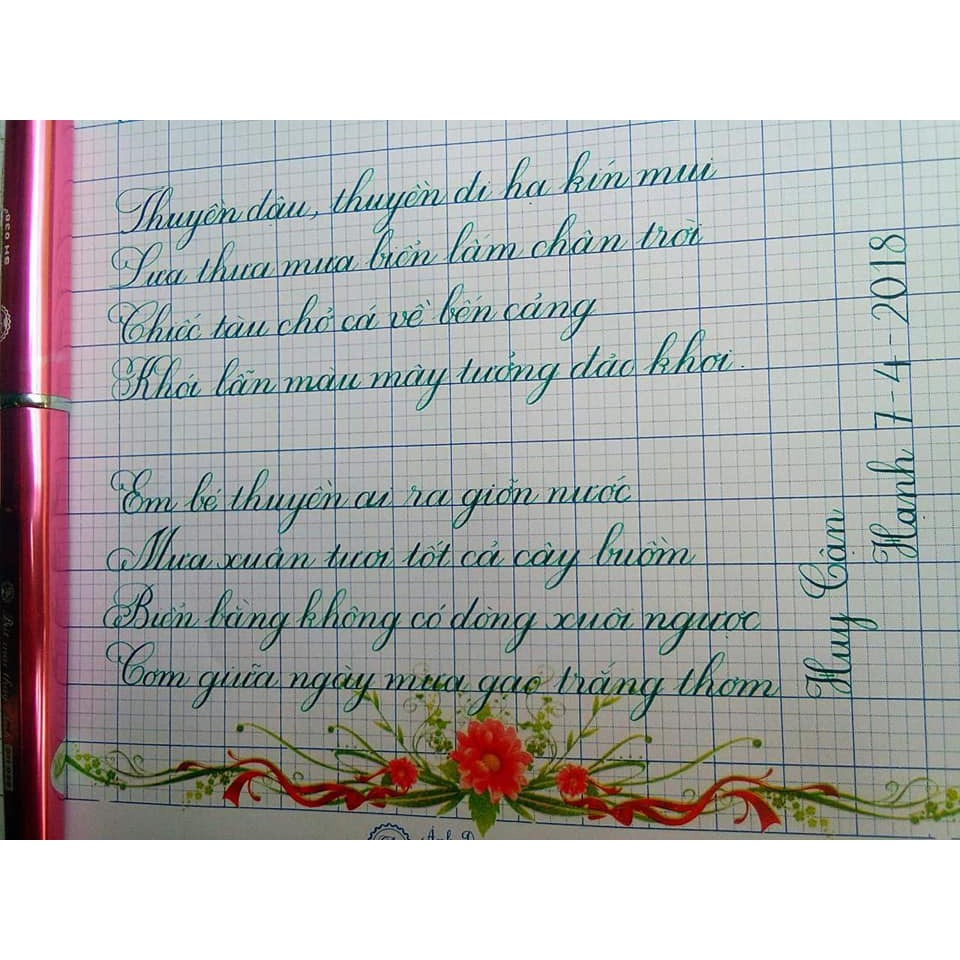 Thuyền đậu, thuyền đi hạ kín mui
Lưa thưa mưa biển lấm chân trời
Chiếc tàu chở cá về bến cảng
Khói lẫn màu mây tưởng đảo khơi.
Em bé thuyền ai ra giỡn nước
Mưa xuân tươi tốt cả cây buồm
Biển bằng không có dòng xuôi ngược
Cơm giữa ngày mưa gạo trắng thơm
Huy Cận
Hạnh 7-4-2018
SH 038